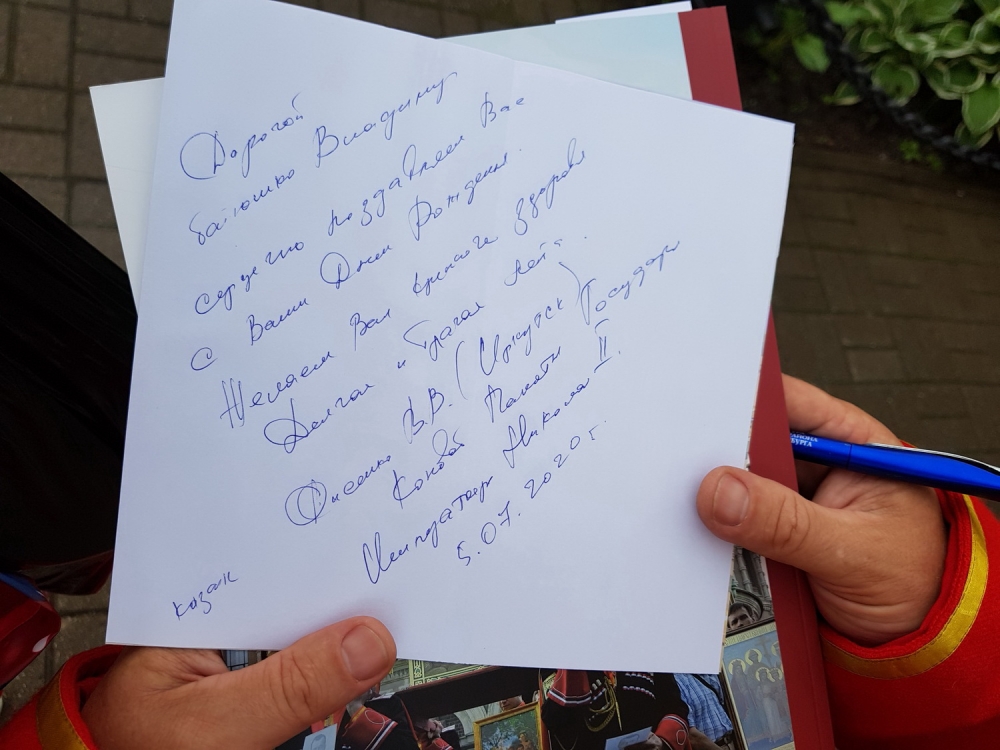 Дорогой
батюшка Владимир
сердечно поздравляем Вас
с Вашим Днем Рождения.
Желаем Вам крепкого здоровья
Долгая и благая лета.
В.В. (Иркутск)
Конвой Памяти Государя
Императора Николая II.
5.07.2020 г.
казак